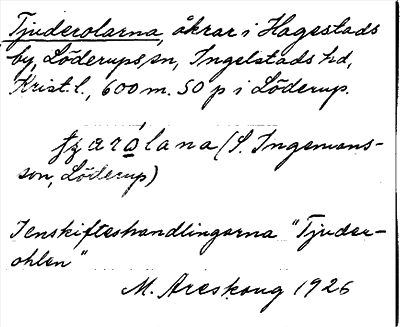 Tjuderolarna, åkrar i Hagestads
by, Löderups sn, Ingelstads hd,
Krist. l., 600 m. SO p i Löderup.
arolana (S. Ingemans-
son, Löderup)
I enskifteshandlingarna "Tjuder-
ohlen"
M. Areskoug 1926